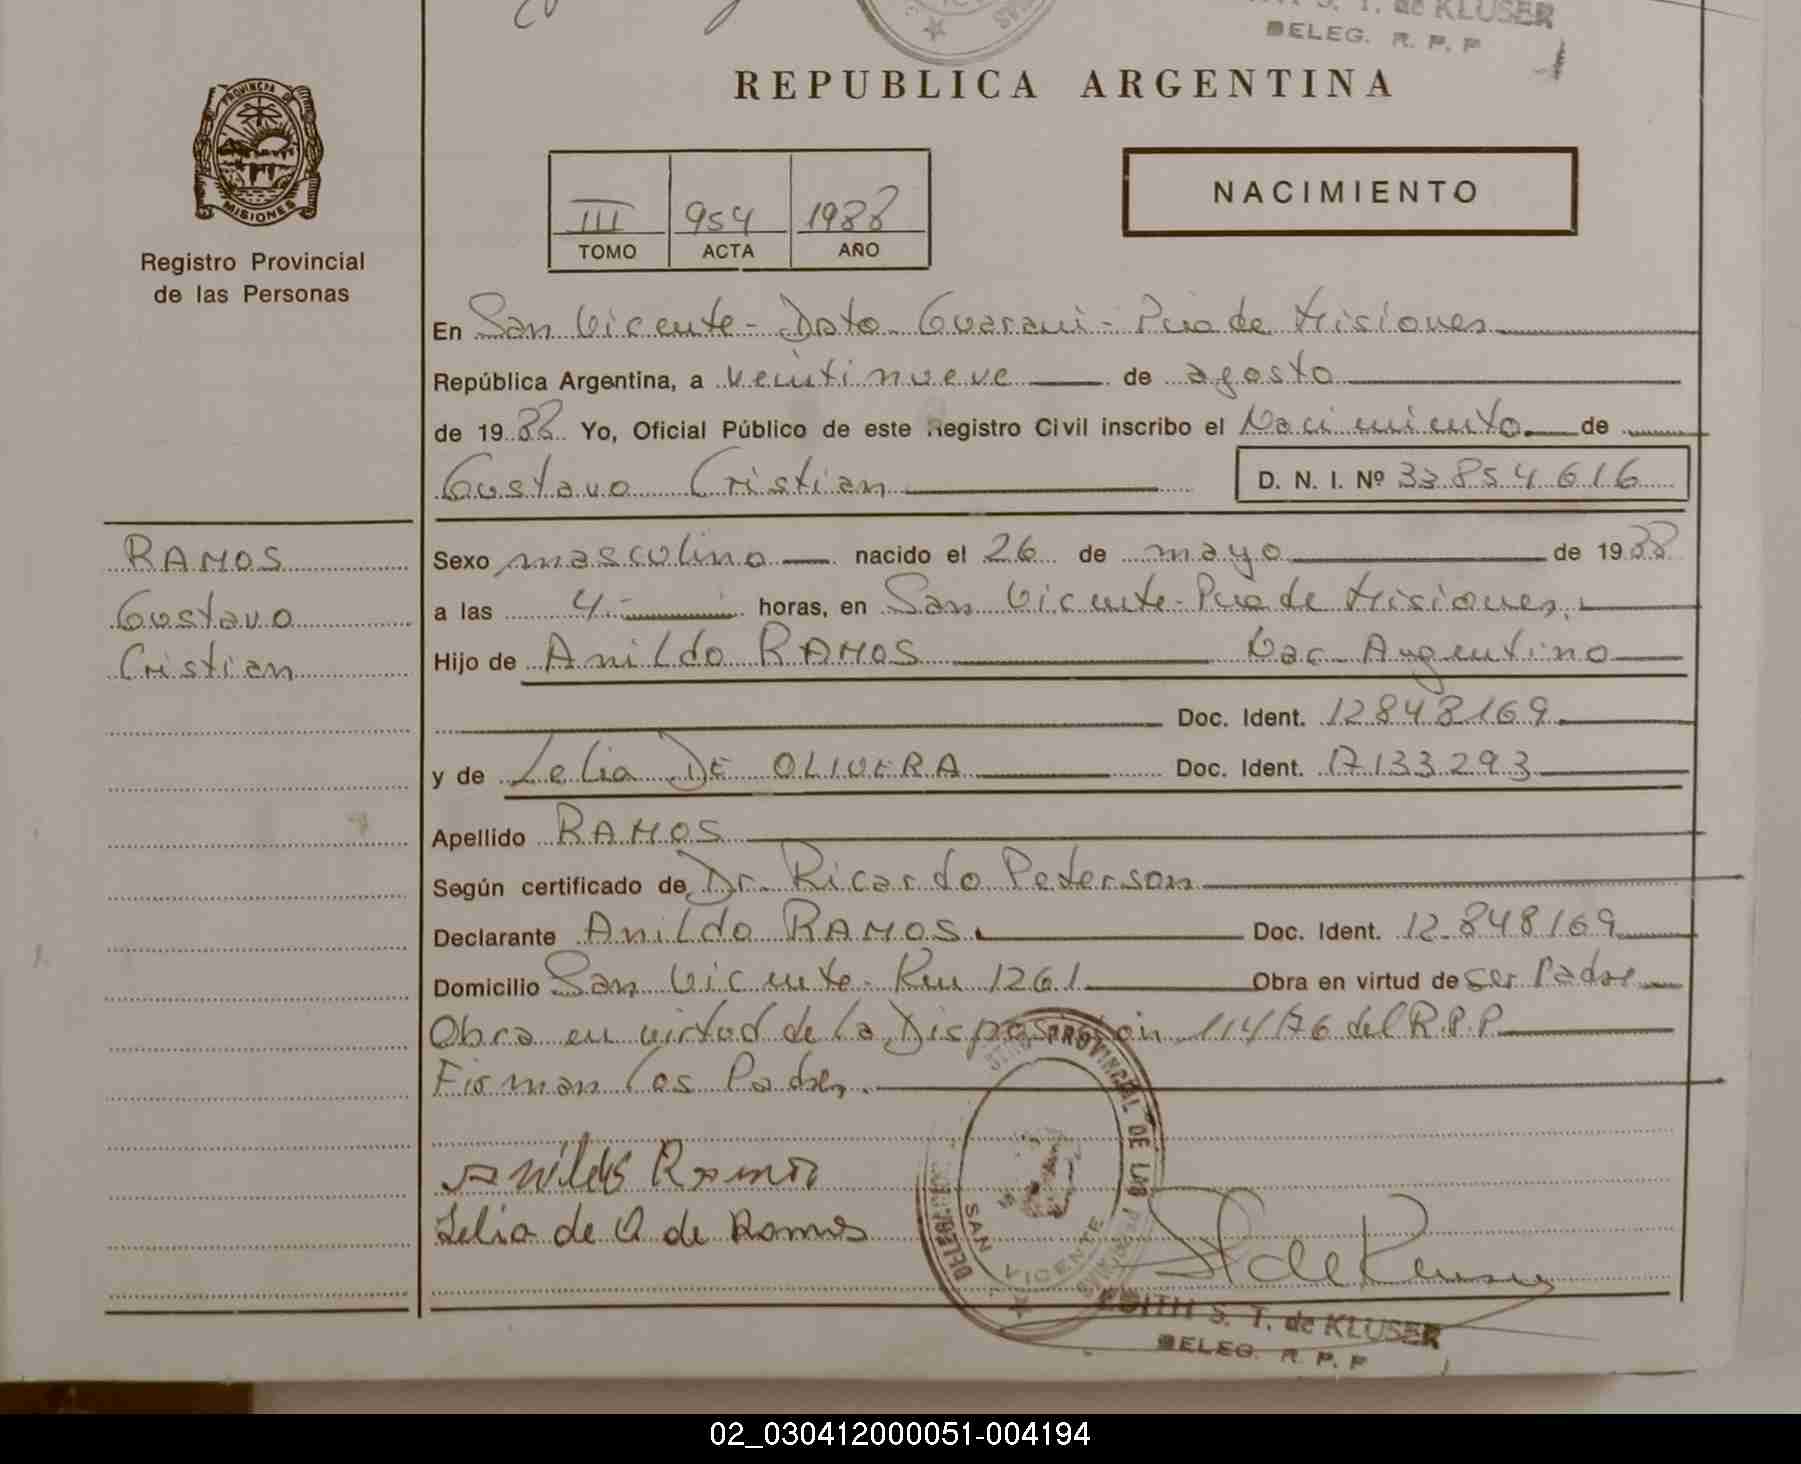 S. T. de KLUSER
DELEG. R. P. P
REPUBLICA ARGENTINA
PROVINCIA DE
MISIONES
Registro Provincial
de las Personas
III 954 1988
TOMO ACTA AÑO
NACIMIENTO
En San Vicente - Dpto Guarani - Pcia de Misiones
República Argentina, a veintinueve de agosto
de 1988 Yo, Oficial Público de este Registro Civil inscribo el Nacimiento de
Gustavo Cristian D. N. I. Nº 33854616
RAMOS
Gustavo
Cristian
Sexo masculino nacido el 26 de mayo de 1988
a las 4.- horas, en San Vicente - Pcia de Misiones.
Hijo de Anildo RAMOS Nac. Argentino
Doc. Ident. 12848169
y de Lelia DE OLIVERA Doc. Ident. 17133293
Apellido RAMOS
Según certificado de Dr. Ricardo Peterson
Declarante Anildo RAMOS. Doc. Ident. 12.848169
Domicilio San Vicente - Km 1261 Obra en virtud de ser Padre
Obra en virtud de la Disposición 114/76 del R.P.P.
Firman los Padres.
Anildo Ramos
Lelia de O de Ramos
PROVINCIAL DE LAS
SAN VICENTE
EDITH S. T. de KLUSER
DELEG. R. P. P
02_030412000051-004194